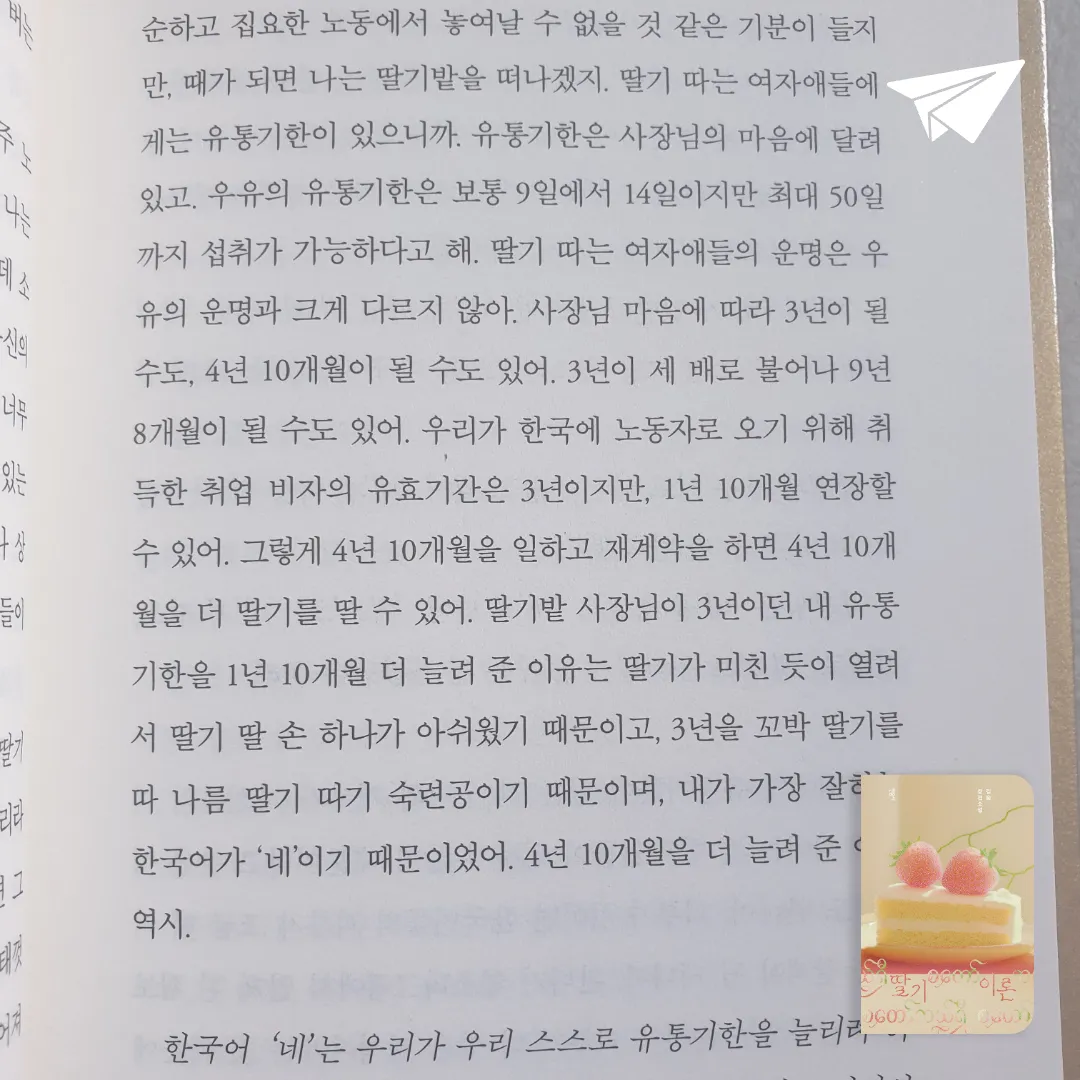 순하고 집요한 노동에서 놓여날 수 없을 것 같은 기분이 들지
만, 때가 되면 나는 딸기밭을 떠나겠지. 딸기 따는 여자애들에
게는 유통기한이 있으니까. 유통기한은 사장님의 마음에 달려
있고. 우유의 유통기한은 보통 9일에서 14일이지만 최대 50일
까지 섭취가 가능하다고 해. 딸기 따는 여자애들의 운명은 우
유의 운명과 크게 다르지 않아. 사장님 마음에 따라 3년이 될
수도, 4년 10개월이 될 수도 있어. 3년이 세 배로 불어나 9년
8개월이 될 수도 있어. 우리가 한국에 노동자로 오기 위해 취
득한 취업 비자의 유효기간은 3년이지만, 1년 10개월 연장할
수 있어. 그렇게 4년 10개월을 일하고 재계약을 하면 4년 10개
월을 더 딸기를 딸 수 있어. 딸기밭 사장님이 3년이던 내 유통
기한을 1년 10개월 더 늘려 준 이유는 딸기가 미친 듯이 열려
서 딸기 딸 손 하나가 아쉬웠기 때문이고, 3년을 꼬박 딸기를
따 나름 딸기 따기 숙련공이기 때문이며, 내가 가장
한국어가 ‘네’이기 때문이었어. 4년 10개월을 더 늘려 준
역시.
한국어 ‘네’는 우리가 우리 스스로 유통기한을
버는
나는
신의
너무
있는
상
들이
딸기
리라
그
딸기 이론